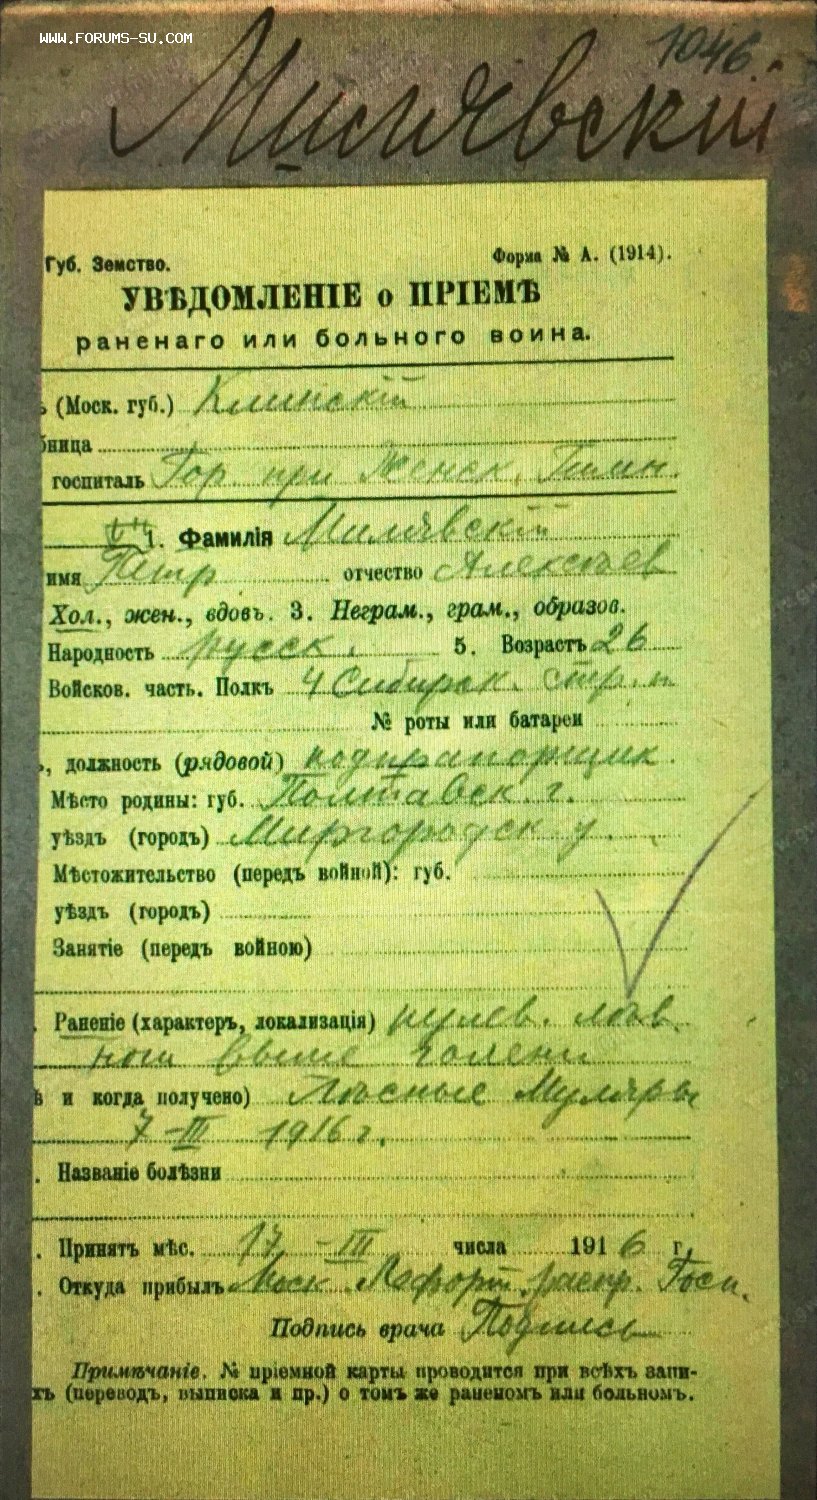 WWW.FORUMS-SU.COM
1046.
Милявскій
Губ. Земство. Форма № А. (1914).
УВѢДОМЛЕНІЕ о ПРІЕМѢ
раненаго или больного воина.
ь (Моск. губ.) Клинскій
бница
госпиталь Гор. при Женск. Гимн.
1. Фамилія Милявскій
имя Петр отчество Алексѣев
Хол., жен., вдовъ. 3. Неграм., грам., образов.
Народность русск. 5. Возрастъ 26
Войсков. часть. Полкъ 4 Сибирск. стр. п
№ роты или батареи
ь, должность (рядовой) подпрапорщик
Мѣсто родины: губ. Полтавск. г.
уѣздъ (городъ) Миргородск у.
Мѣстожительство (передъ войной): губ.
уѣздъ (городъ)
Занятіе (передъ войною)
. Раненіе (характеръ, локализація) пулев. лѣв.
ноги выше голени
ѣ и когда получено) Лѣсные Муляры
7-III 1916 г.
. Названіе болѣзни
. Принятъ мѣс. 17-III числа 1916 г.
. Откуда прибылъ Моск. Лефорт. распр. Госп.
Подпись врача Подпись
Примѣчаніе. № пріемной карты проводится при всѣхъ запи-
хъ (переводъ, выписка и пр.) о томъ же раненомъ или больномъ.